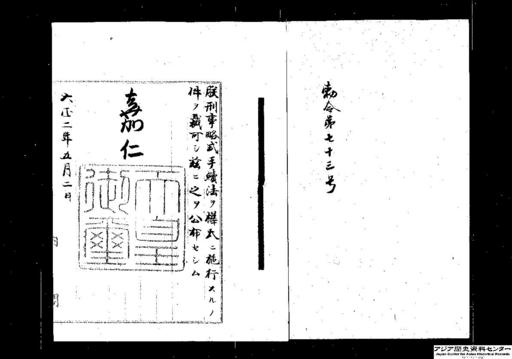 勅令第七十三号
朕刑事略式手続法ヲ樺太ニ施行スルノ
件ヲ裁可シ茲ニ之ヲ公布セシム
嘉仁
天皇御璽
大正二年五月二日
アジア歴史資料センター
Japan Center for Asian Historical Records